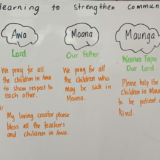 learning to Strengthen Commun
Awa
Moana
Maunga
Lord
Our Father
Our Lord
We pray for all
the children in Awa
to show respect to
each other.
We pray for all
the children who
may be sick in
Moana.
Please help the
children in Mau
to be
kind.
My loving creator please
bless all the teachers
and children in Awa.